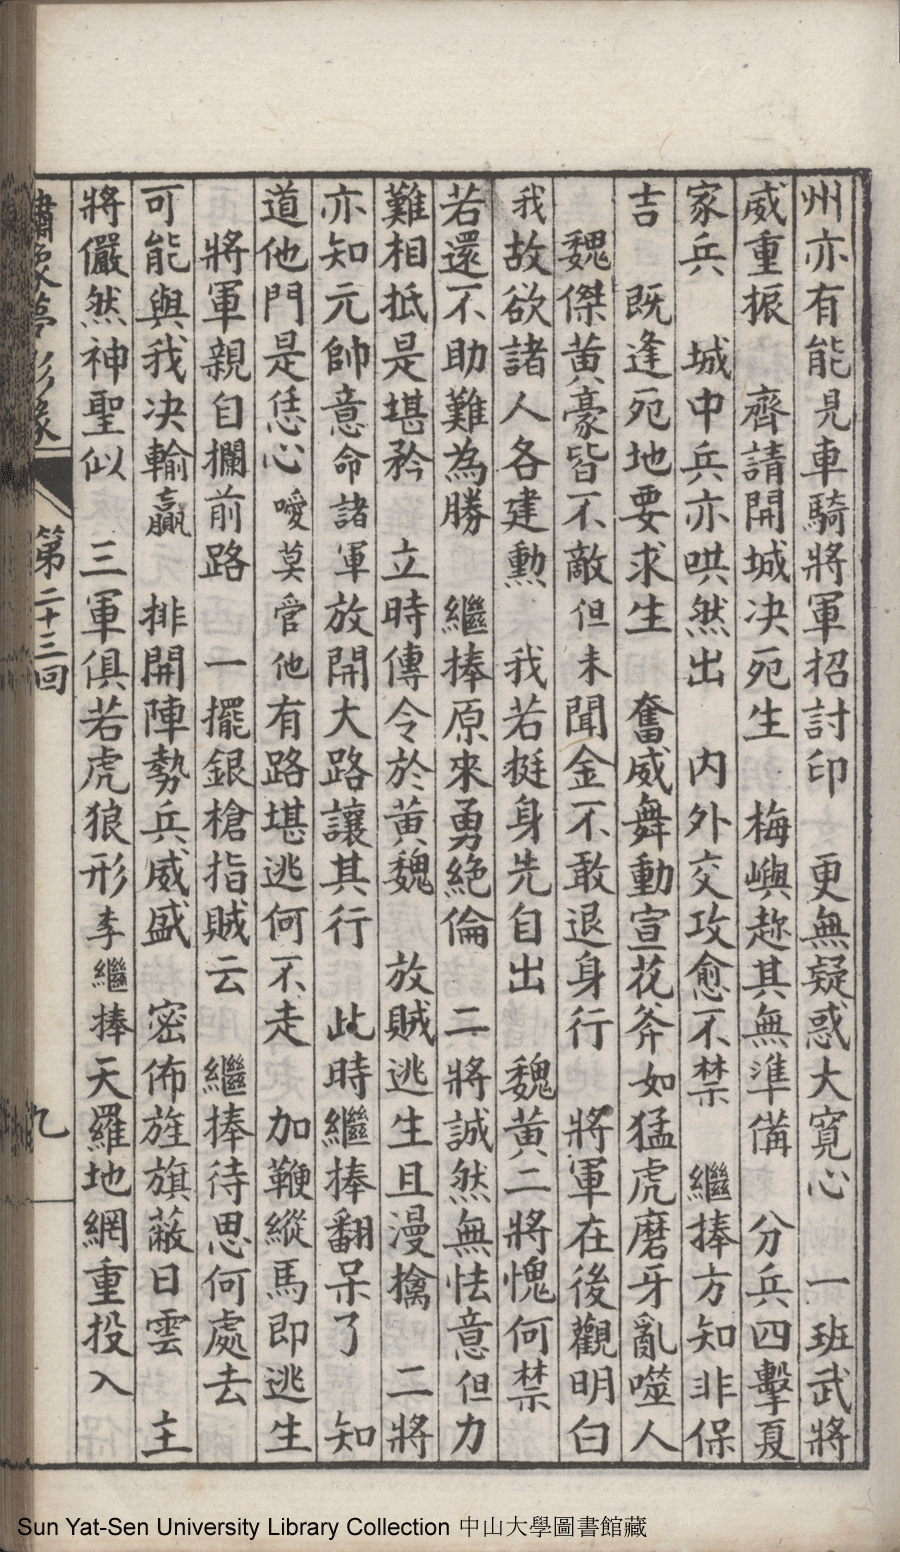 州亦有能見車騎將軍招討印　更無疑惑大寬心　一班武將
威重振　齊請開城决死生　梅嶼趂其無準備　分兵四擊夏
家兵　城中兵亦哄然出　内外交攻愈不禁　繼捧方知非保
吉　既逢死地要求生　奮威舞動宣花斧如猛虎磨牙亂噬人
魏傑黄豪皆不敵但未聞金不敢退身行　將軍在後觀明白
我故欲諸人各建勲　我若挺身先自出　魏黄二將愧何禁
若還不助難為勝　繼捧原來勇絶倫　二將誠然無怯意但力
難相抵是堪矜　立時傳令於黄魏　放賊逃生且漫擒　二將
亦知元帥意命諸軍放開大路讓其行　此時繼捧翻呆了　知
道他門是恁心噯莫管他有路堪逃何不走　加鞭縱馬即逃生
將軍親自攔前路　一擺銀槍指賊云　繼捧待思何處去
可能與我决輸贏　排開陣勢兵威盛　密佈旌旗蔽日雲　主
將儼然神聖似　三軍俱若虎狼形李繼捧天羅地網重投入
繡像夢影緣　第二十三回　九
Sun Yat-Sen University Library Collection 中山大學圖書館藏